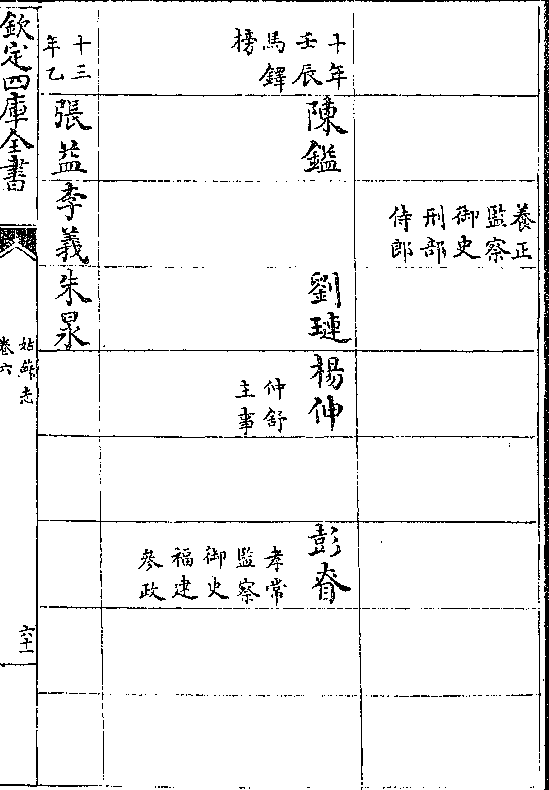 養正
監察
御史
刑部
侍郎
十年
壬辰
馬鐸
榜
陳鑑
劉璉
楊伸
仲舒
主事
彭
孝常
監察
御史
福建
參政
十三
年乙
張益
李義
朱泉
欽定四庫全書
姑蘇志
卷六
六十一